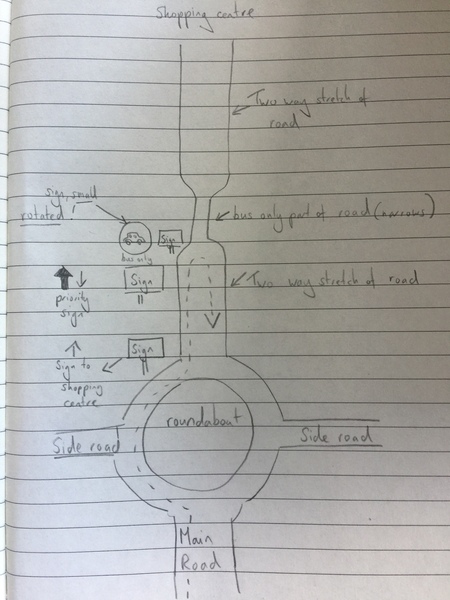 Shopping centre
Two way stretch of
road
sign, small
rotated
bus only part of road (narrows)
Sign
bus only
Sign
Two way stretch of road
priority
sign
Sign
Sign to
shopping
centre
roundabout
Side road
Side road
Main
Road